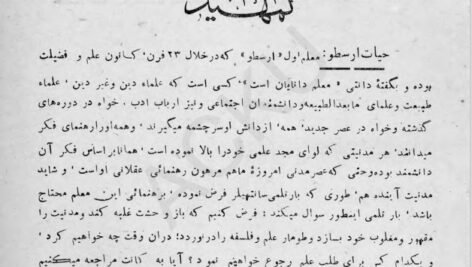 تمهید
حیات ارسطو: معلم اول «ارسطو» که در خلال ۲۳ قرن، کانون علم و فضیلت
بوده و بگفتهٔ دانتی «معلم دانایان است»، کسی است که علماء دین وغیر دین، علماء
طبیعت وعلمای مابعدالطبیعه ودانشمندان اجتماعی و نیز ارباب ادب. خواه در دوره‌های
گذشته وخواه در عصر جدید، همه ازدانش اوسرچشمه میگیرند، وهمه اورا رهنمای فکر
میدانند. هر مدنیتی که لوای مجد علمی خودرا بالا نموده است، همانا بر اساس فکر آن
دانشمند بوده وحتی که عصر مدنی امروزهٔ ماهم مرهون رهنمائی عقلانی اواست و شاید
مدنیت آینده هم طوری که بارتلمی سانتهیلر فرض نموده، برهنمائی این معلم محتاج
باشد، بار تلمی اینطور سوال میکند: فرض کنیم که باز وحشت غلبه کند ومدنیت را
مقهور و مغلوب خود بسازد وطومار علم وفلسفه را درنوردد؛ دران وقت چه خواهیم کرد،
و بکدام کس برای طلب علم رجوع خواهیم نمود؟ آیا به کانت مراجعه میکنیم